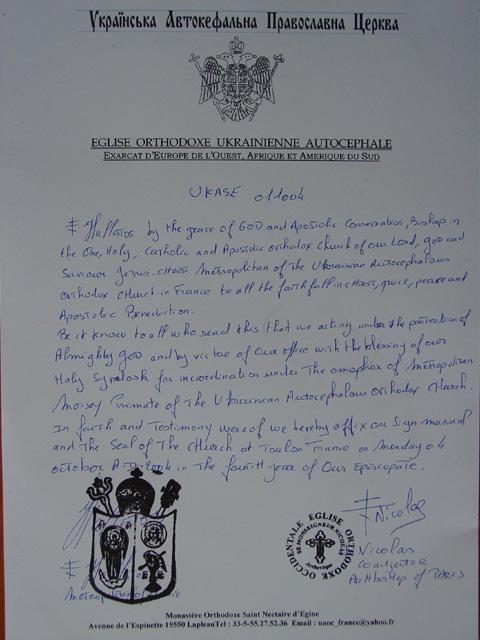 Українська Автокефальна Православна Церква
EGLISE ORTHODOXE UKRAINIENNE AUTOCEPHALE
EXARCAT D'EUROPE DE L'OUEST, AFRIQUE ET AMERIQUE DU SUD
UKASE 011004
by the grace of GOD and Apostolic Consecration, Bishop in
the One, Holy, Catholic and Apostolic orthodox church of our Lord, god and
Saviour Jesus-CHRIST Metropolitan of The Ukrainian Autocephalous
orthodox church in France to all the faithfull in CHRIST, peace and
Apostolic Benediction.
Be it know to all who read this that we acting under the protection of
Almighty god and by virtue of Our office with the blessing of our
Holy for incardination under The omophor of Metropolitan
Moisey Primate of The Ukrainian Autocephalous Orthodox Church.
In faith and Testimony wereof we hereby affix our Sign manual
and The Seal of The Church at Toulon France on Monday 04
october A.D. 2004 in The fourth year of Our Episcopate.
Nicolas
Nicolas
coadjutor
Archbishop of PARIS
EGLISE ORTHODOXE OCCIDENTALE
SE MONSEIGNEUR NICOLAS
Archevêque
Monastère Orthodoxe Saint Nectaire d'Egine
Avenue de l'Espinette 19550 LapleauTel : 33-5-55.27.52.36 Email : uaoc_france@yahoo.fr